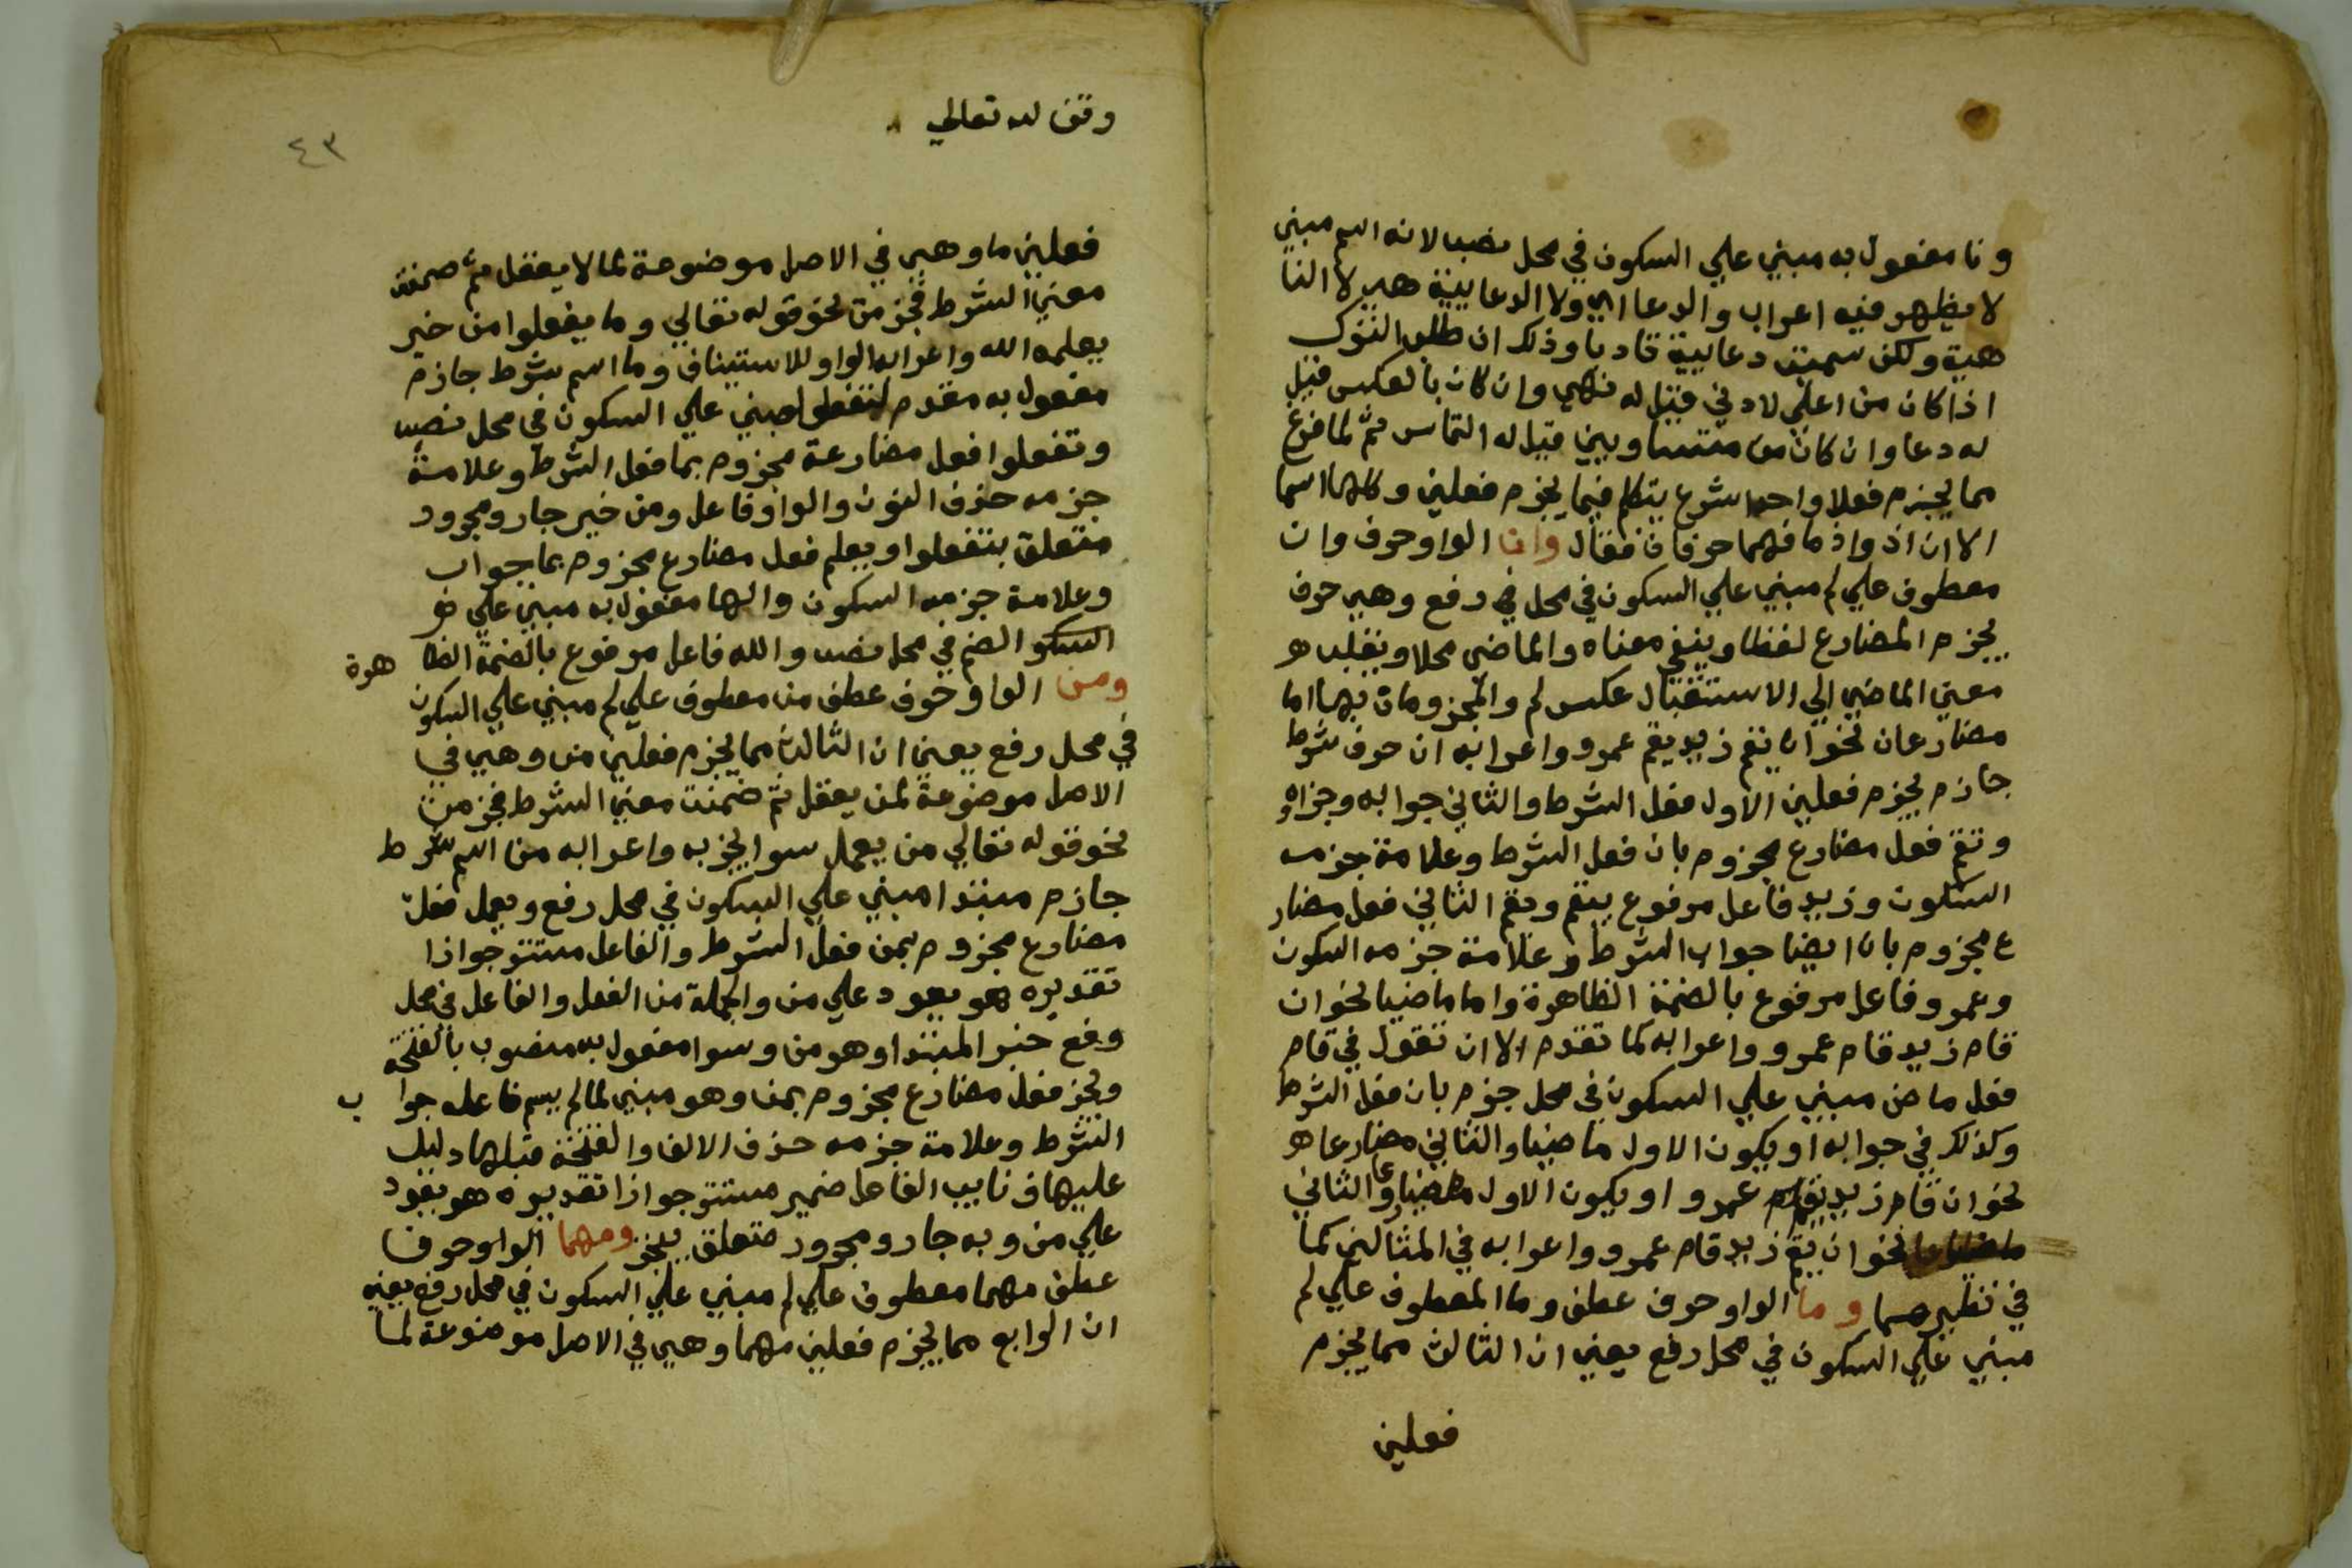 ونا مفعول به مبني علي السكون في محل نصب لانه اسم مبني
لا يظهر فيه اعراب والدعا اي ولا الدعايية هي لا النا
هية ولكن سميت دعايية تادبا وذلك ان طلب الترك
اذا كان من اعلي لادني قيل له نهي وان كان بالعكس قيل
له دعا وان كان من متساويين قيل له التماس ثم لما فرغ
مما يجزم فعلا واحدا شرع يتكلم فيما يجزم فعلين وكلها اسما
الا ان اذ واذما فهما حرفان فقال وان الواو حرف وان
معطوف علي لم مبني علي السكون في محل في رفع وهي حرف
يجزم المضارع لفظا وينفي معناه والماضي محلا ويقلب هو
معني الماضي الي الاستقبال عكس لم والمجزومان بها اما
مضارعان نحو ان يقم زيد يقم عمرو واعرابه ان حرف شرط
جازم يجزم فعلين الاول فعل الشرط والثاني جوابه وجزاوه
وتقم فعل مضارع مجزوم بان فعل الشرط وعلامة جزمه
السكون وزيد فاعل مرفوع بيقم ويقم الثاني فعل مضار
ع مجزوم بان ايضا جواب الشرط وعلامة جزمه السكون
وعمرو فاعل مرفوع بالضمة الظاهرة واما ماضيا نحو ان
قام زيد قام عمرو واعرابه كما تقدم الا ان تقول في قام
فعل ماض مبني علي السكون في محل جزم بان فعل الشرط
وكذلك في جوابه او يكون الاول ماضيا والثاني مضارعا هو
نحو ان قام زيد يقم عمرو او يكون الاول والثاني
نحو ان يقم زيد قام عمرو واعرابه في المثالين كما
في نظيرهما وما الواو حرف عطف وما المعطوف علي لم
مبني علي السكون في محل رفع يعني ان الثالث مما يجزم
فعلين
وقف لله تعالي
٤٣
فعلين ما وهي في الاصل موضوعة لما لا يعقل ثم ضمنت
معني الشرط فجزمت نحو قوله تعالي وما يفعلوا من خير
يعلمه الله واعرابه الواو للاستيناف وما اسم شرط جازم
مفعول به مقدم لتفعلوا مبني علي السكون في محل نصب
وتفعلوا فعل مضارعة مجزوم بما فعل الشرط وعلامة
جزمه حذف النون والواو فاعل ومن خير جار ومجرور
متعلق بتفعلوا ويعلم فعل مضارع مجزوم بما جواب
وعلامة جزمه السكون والها مفعول به مبني علي
السكو الضم في محل نصب والله فاعل مرفوع بالضمة الظا هرة
ومن الواو حرف عطف من معطوف علي لم مبني علي السكون
في محل رفع يعني ان الثالث مما يجزم فعلين من وهي في
الاصل موضوعة لمن يعقل ثم ضمنت معني الشرط فجزمت
نحو قوله تعالي من يعمل سوا يجز به واعرابه من اسم شرط
جازم مبتدا مبني علي السكون في محل رفع ويعمل فعل
مضارع مجزوم بمن فعل الشرط والفاعل مستتر جوازا
تقديره هو يعود علي من والجملة من الفعل والفاعل في محل
رفع خبر المبتدا وهو من وسوا مفعول به منصوب بالفتحة
ويجز فعل مضارع مجزوم بمن وهو مبني لما لم يسم فاعله جوا ب
الشرط وعلامة جزمه حذف الالف والفتحة قبلها دليل
عليها ونايب الفاعل ضمير مستتر جوازا تقديره هو يعود
علي من وبه جار ومجرور متعلق بيجز ومهما الواو حرف
عطف مهما معطوف علي لم مبني علي السكون في محل رفع يعني
ان الرابع مما يجزم فعلين مهما وهي في الاصل موضوعة لما